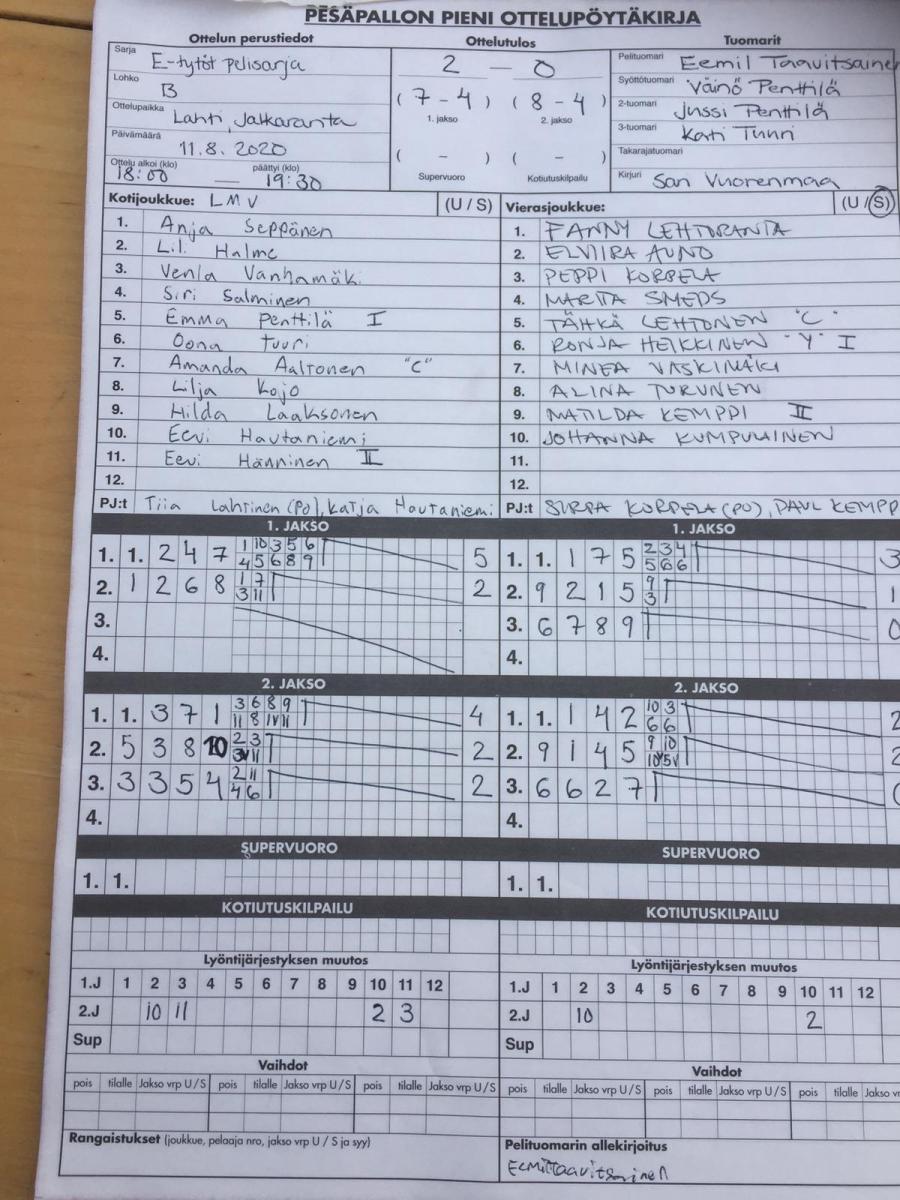 PESÄPALLON PIENI OTTELUPÖYTÄKIRJA
Ottelun perustiedot
Sarja E-tytöt pelisarja
Lohko B
Ottelupaikka Lahti, Jalkaranta
Päivämäärä 11.8.2020
Ottelu alkoi (klo) päättyi (klo)
18:00 — 19:30
Ottelutulos
2 — 0
( 7 - 4 ) ( 8 - 4 )
1. jakso 2. jakso
( - ) ( - )
Supervuoro Kotiutuskilpailu
Tuomarit
Pelituomari Eemil Taavitsainen
Syöttötuomari Väinö Penttilä
2-tuomari Jussi Penttilä
3-tuomari Kati Tuuri
Takarajatuomari
Kirjuri Sari Vuorenmaa
Kotijoukkue: LMV (U / S)
1. Anja Seppänen
2. Lili Halme
3. Venla Vanhamäki
4. Siri Salminen
5. Emma Penttilä I
6. Oona Tuuri
7. Amanda Aaltonen "C"
8. Lilja Kojo
9. Hilda Laaksonen
10. Eevi Hautaniemi
11. Eevi Hänninen II
12.
PJ:t Tiia Lahtinen (PO), Katja Hautaniemi
Vierasjoukkue: (U / S)
1. FANNY LEHTORANTA
2. ELVIIRA AUNO
3. PEPPI KORPELA
4. MARTTA SMEDS
5. TÄHKÄ LEHTONEN "C"
6. RONJA HEIKKINEN "Y" I
7. MINEA VASKIMÄKI
8. ALINA TURUNEN
9. MATILDA KEMPPI II
10. JOHANNA KUMPULAINEN
11.
12.
PJ:t SIRPA KORPELA (PO), PAUL KEMPP
1. JAKSO
1. 1. 2 4 7 1 10 3 5 6 5
4 5 6 8 9
2. 1 2 6 8 1 7 2
3 11
3.
4.
1. JAKSO
1. 1. 1 7 5 2 3 4 3
5 6 6
2. 9 2 1 5 9 1
3
3. 6 7 8 9 0
4.
2. JAKSO
1. 1. 3 7 1 3 6 8 9 4
11 8 1V 11
2. 5 3 8 10 2 3 2
3V 11
3. 3 3 5 4 2 11 2
4 6
4.
2. JAKSO
1. 1. 1 4 2 10 3 2
6 6
2. 9 1 4 5 9 10 2
10V 5V
3. 6 6 2 7
4.
SUPERVUORO
1. 1.
SUPERVUORO
1. 1.
KOTIUTUSKILPAILU
KOTIUTUSKILPAILU
Lyöntijärjestyksen muutos
1.J 1 2 3 4 5 6 7 8 9 10 11 12
2.J 10 11 2 3
Sup
Lyöntijärjestyksen muutos
1.J 1 2 3 4 5 6 7 8 9 10 11 12
2.J 10 2
Sup
Vaihdot
pois tilalle Jakso vrp U / S pois tilalle Jakso vrp U / S pois tilalle Jakso vrp U / S
Vaihdot
pois tilalle Jakso vrp U / S pois tilalle Jakso vrp U / S pois tilalle Jakso vr
Rangaistukset (joukkue, pelaaja nro, jakso vrp U / S ja syy)
Pelituomarin allekirjoitus
Eemil Taavitsainen